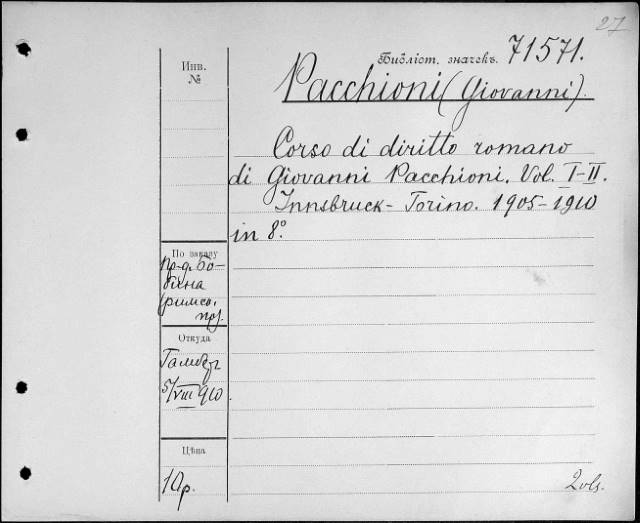 27
Библіот. значекъ. 71571.
Инв.
№
Pacchioni (Giovanni).
Corso di diritto romano
di Giovanni Pacchioni. Vol. I-II.
Innsbruck - Torino. 1905-1910
in 8°.
По заказу
Откуда
5/VIII 910
Цѣна
10р.
2 vls.